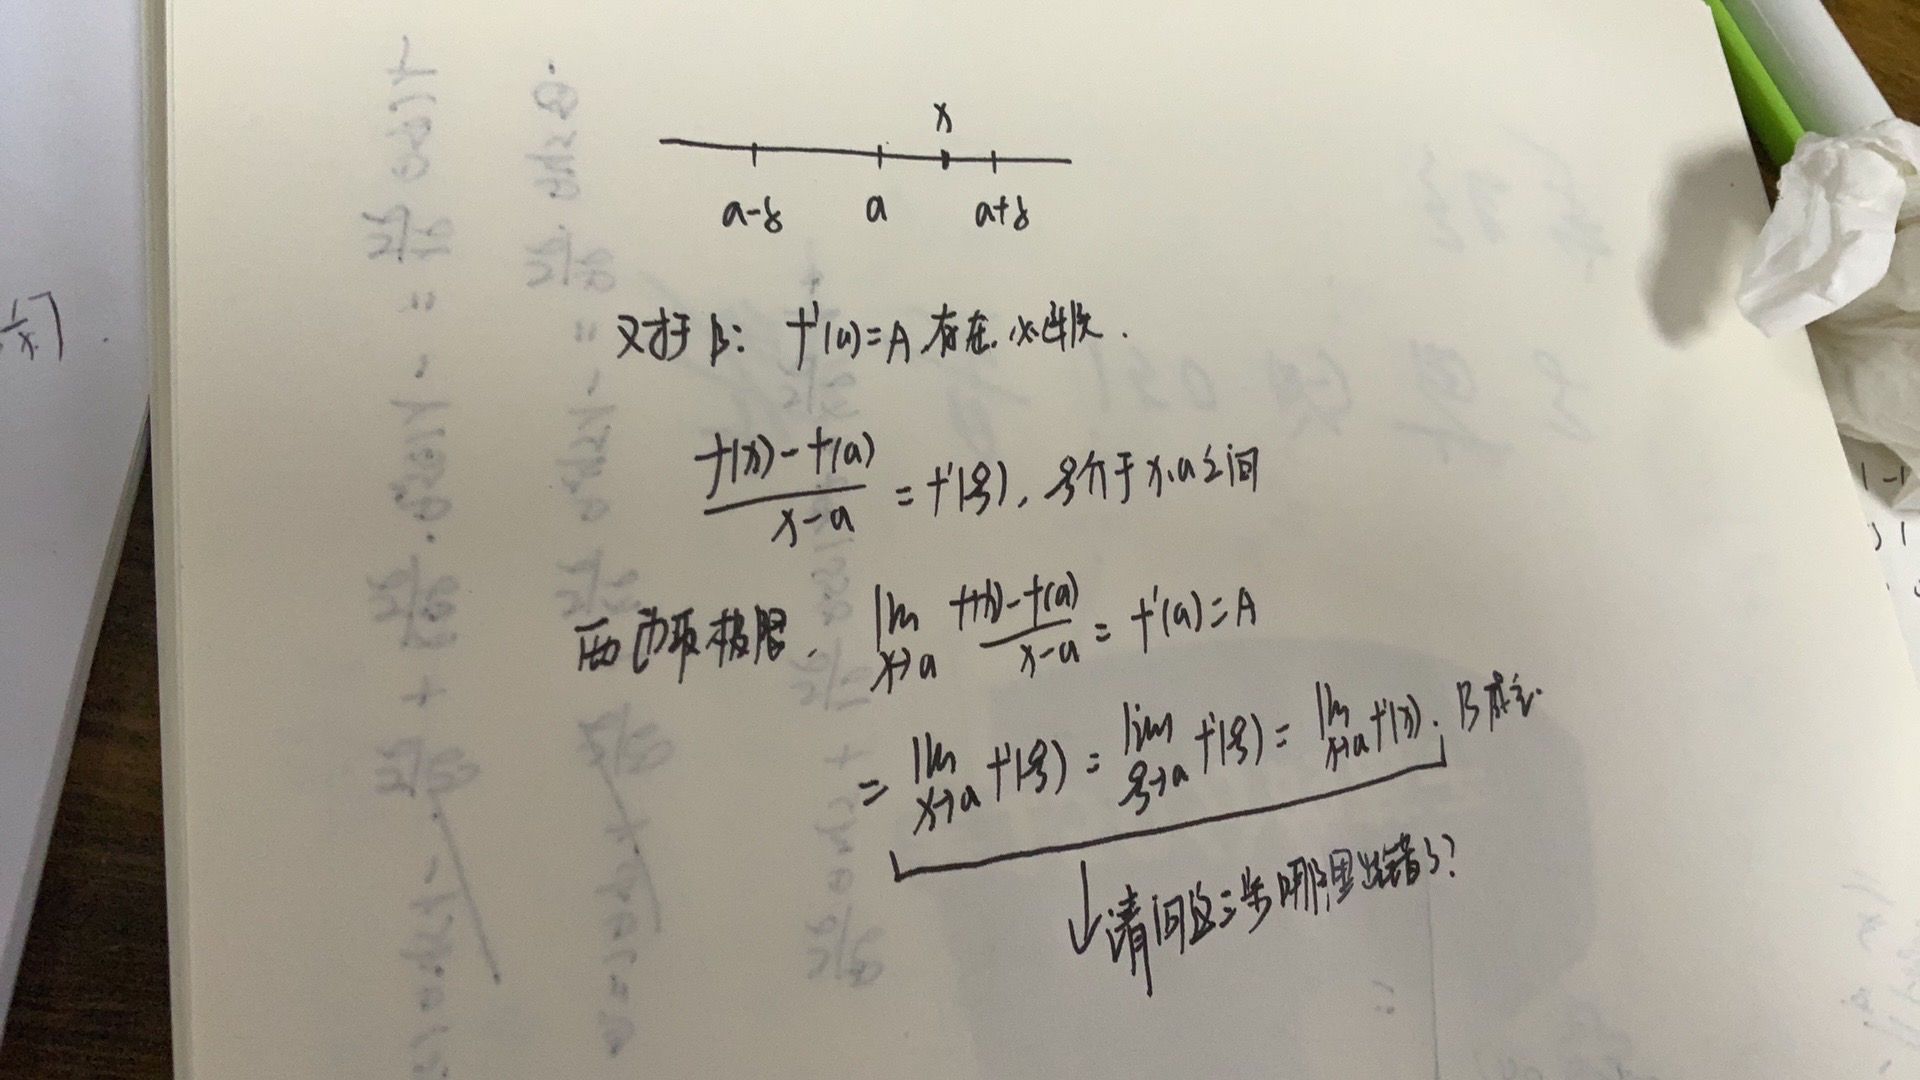 x
a-δ a a+δ
对于B: f'(a)=A 存在,必连续.
f(x)-f(a) / x-a = f'(ξ), ξ介于x,a之间
两边取极限, lim x→a f(x)-f(a) / x-a = f'(a)=A
= lim x→a f'(ξ) = lim ξ→a f'(ξ) = lim x→a f'(x). B成立.
请问这三步哪里出错了?